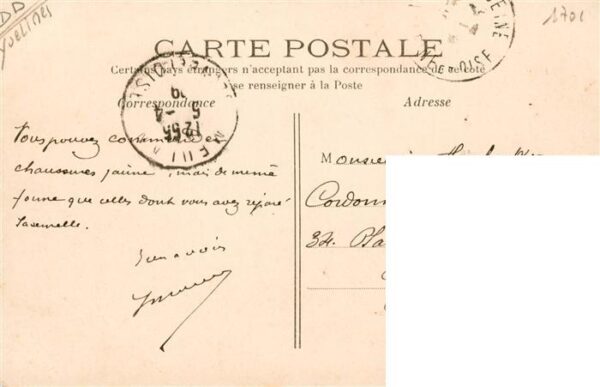 DD
Yvelines
1701
CARTE POSTALE
Certains pays étrangers n'acceptant pas la correspondance de ce côté
se renseigner à la Poste
Correspondance
Adresse
SEINE
OISE
12 55
5 -4
09
MEULAN
Vous pouvez commander
chaussures jaune, mais de même
forme que celles dont vous avez réparé
la semelle.
Monsieur
Cordonn
34. Pla